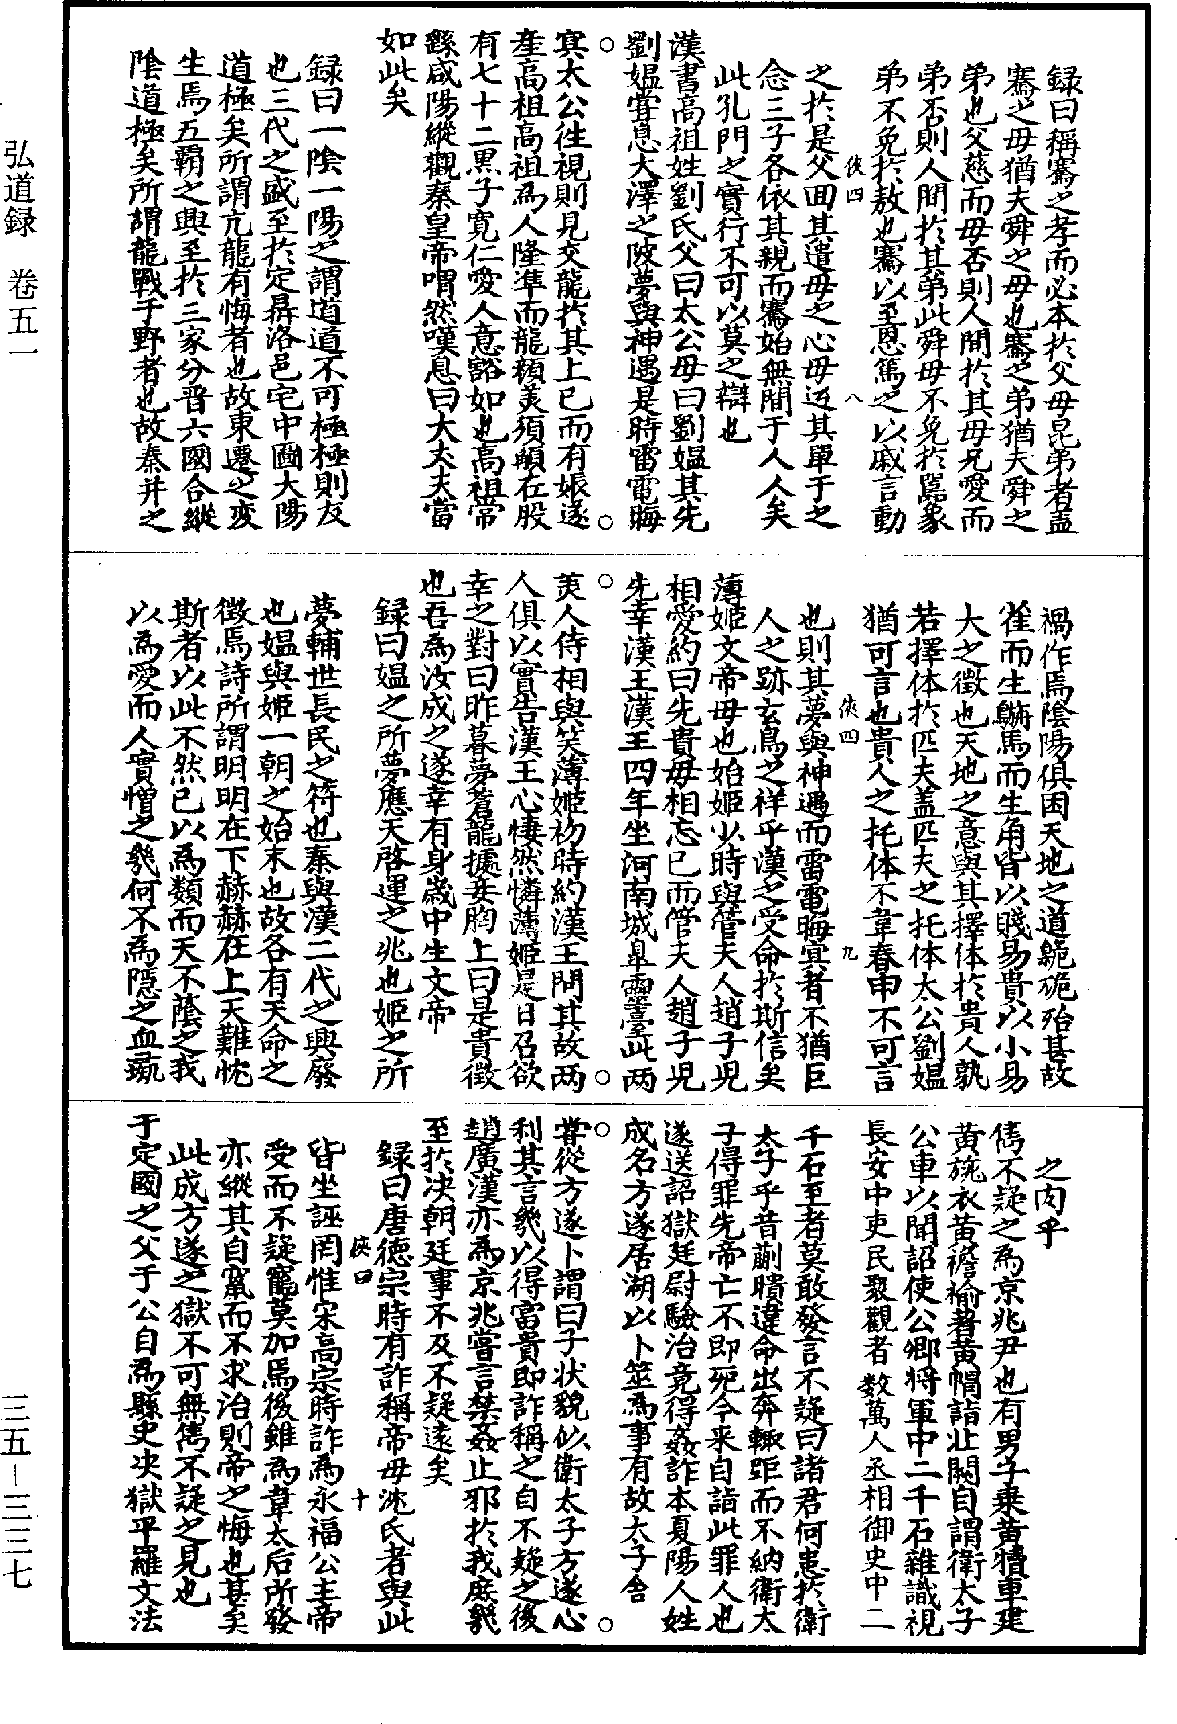 録曰稱騫之孝而必本於父母昆弟者蓋
騫之母猶夫舜之母也騫之弟猶夫舜之
弟也父慈而母否則人間於其母兄愛而
弟否則人間於其弟此舜母不免於嚚象
弟不免於敖也騫以至恩篤之以戚言動
俠四 八
之於是父囬其遣母之心母近其單于之
念三子各依其親而騫始無間于人人矣
此孔門之實行不可以莫之辯也
漢書高祖姓劉氏父曰太公母曰劉媪其先
劉媪甞息大澤之陂夢與神遇是時雷電晦
○ ○
冥太公徃視則見交龍於其上已而有娠遂
產高祖高祖爲人隆準而龍顏美須顛在股
有七十二黒子寛仁愛人意豁如也高祖常
繇咸陽縱觀秦皇帝喟然嘆息曰大丈夫當
如此矣
録曰一陰一陽之謂道道不可極極則反
也三代之盛至於定鼎洛邑宅中圖大陽
道極矣所謂亢龍有悔者也故東遷之变
生焉五覇之興至於三家分晋六國合縱
陰道極矣所謂龍戰于野者也故秦并之
禍作焉陰陽俱困天地之道觤硊殆甚故
雀而生鸇馬而生角皆以賤易貴以小易
大之徴也天地之意與其擇体於貴人孰
若擇体於匹夫盖匹夫之托体太公劉媪
猶可言也貴人之托体不韋春申不可言
俠四 九
也則其夢與神遇而雷電晦冥者不猶巨
人之跡玄鳥之祥乎漢之受命於斯信矣
薄姬文帝母也始姬少時與管夫人趙子児
相愛約曰先貴毋相忘已而管夫人趙子児
先幸漢王漢王四年坐河南城臯靈臺此两
○ ○
美人侍相與笑薄姬初時約漢王問其故两
人俱以實告漢王心悽然憐薄姬是日召欲
幸之對曰昨暮夢蒼龍據妾胸上曰是貴徴
也吾爲汝成之遂幸有身歲中生文帝
録曰媪之所夢應天啓運之兆也姬之所
夢輔世長民之符也秦與漢二代之興廢
也媪與姬一朝之始末也故各有天命之
徴焉詩所謂明明在下赫赫在上天難忱
斯者以此不然已以爲類而天不蔭之我
以爲愛而人實憎之幾何不爲隱之血
之肉乎
雋不疑之爲京兆尹也有男子乗黄犢車建
黄旐衣黄襜褕著黄帽詣北闕自謂衛太子
公車以聞詔使公卿將軍中二千石雜識視
長安中吏民聚觀者数萬人丞相御史中二
千石至者莫敢發言不疑曰諸君何患於衛
太子乎昔蒯聵違命出奔輒距而不納衛太
子得罪先帝亡不即死今来自詣此罪人也
遂送詔獄廷尉驗治竟得姦詐本夏陽人姓
成名方遂居湖以卜筮爲事有故太子舎
○ ○
甞從方遂卜謂曰子状貌似衛太子方遂心
利其言幾以得富貴即詐稱之自不疑之後
趙廣漢亦爲京兆嘗言禁姦止邪於我庶幾
至於决朝廷事不及不疑遠矣
録曰唐德宗時有詐稱帝母沈氏者與此
俠四 十
皆坐誣罔惟宋高宗時詐爲永福公主帝
受而不疑寵莫加焉後雖爲韋太后所發
亦縱其自竄而不求治則帝之悔也甚矣
此成方遂之獄不可無雋不疑之見也
于定國之父于公自爲縣吏决獄平羅文法
弘道録 卷五一
三五—三三七